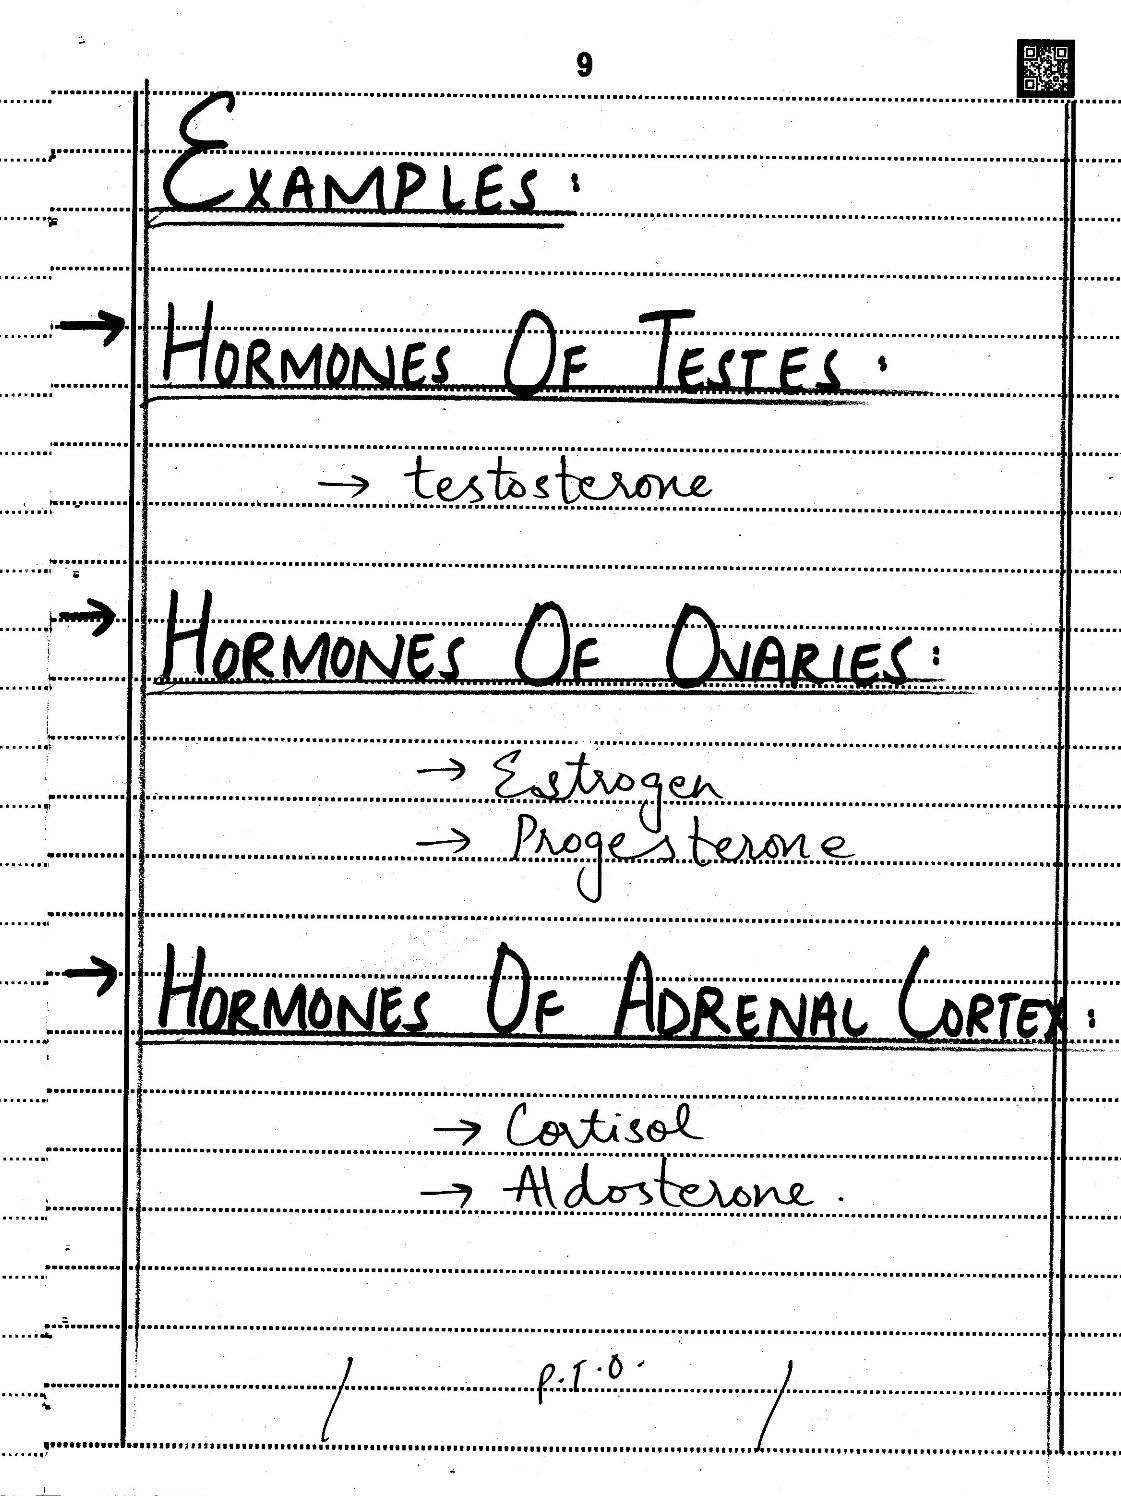 9
EXAMPLES:
→ HORMONES OF TESTES:
→ testosterone
→ HORMONES OF OVARIES:
→ Estrogen
→ Progesterone
→ HORMONES OF ADRENAL CORTEX:
→ Cortisol
→ Aldosterone.
/ P.T.O. /